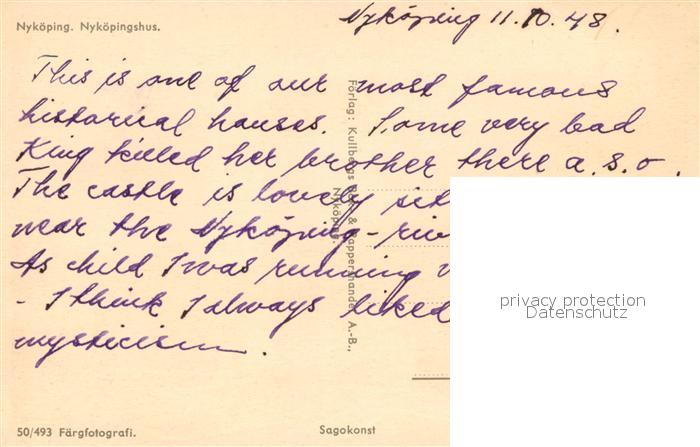 Nyköping. Nyköpingshus.
Nyköping 11.10.48.
This is one of our most famous
historical houses. Some very bad
King killed her brother there a.s.o.
The castle is lovely sit
near the Nyköping-riv
As child I was running
- I think I always liked
mysticism.
Förlag: Kullbergs Bok- & Pappershandel A.-B.,
Nyköping.
privacy protection
Datenschutz
50/493 Färgfotografi.
Sagokonst